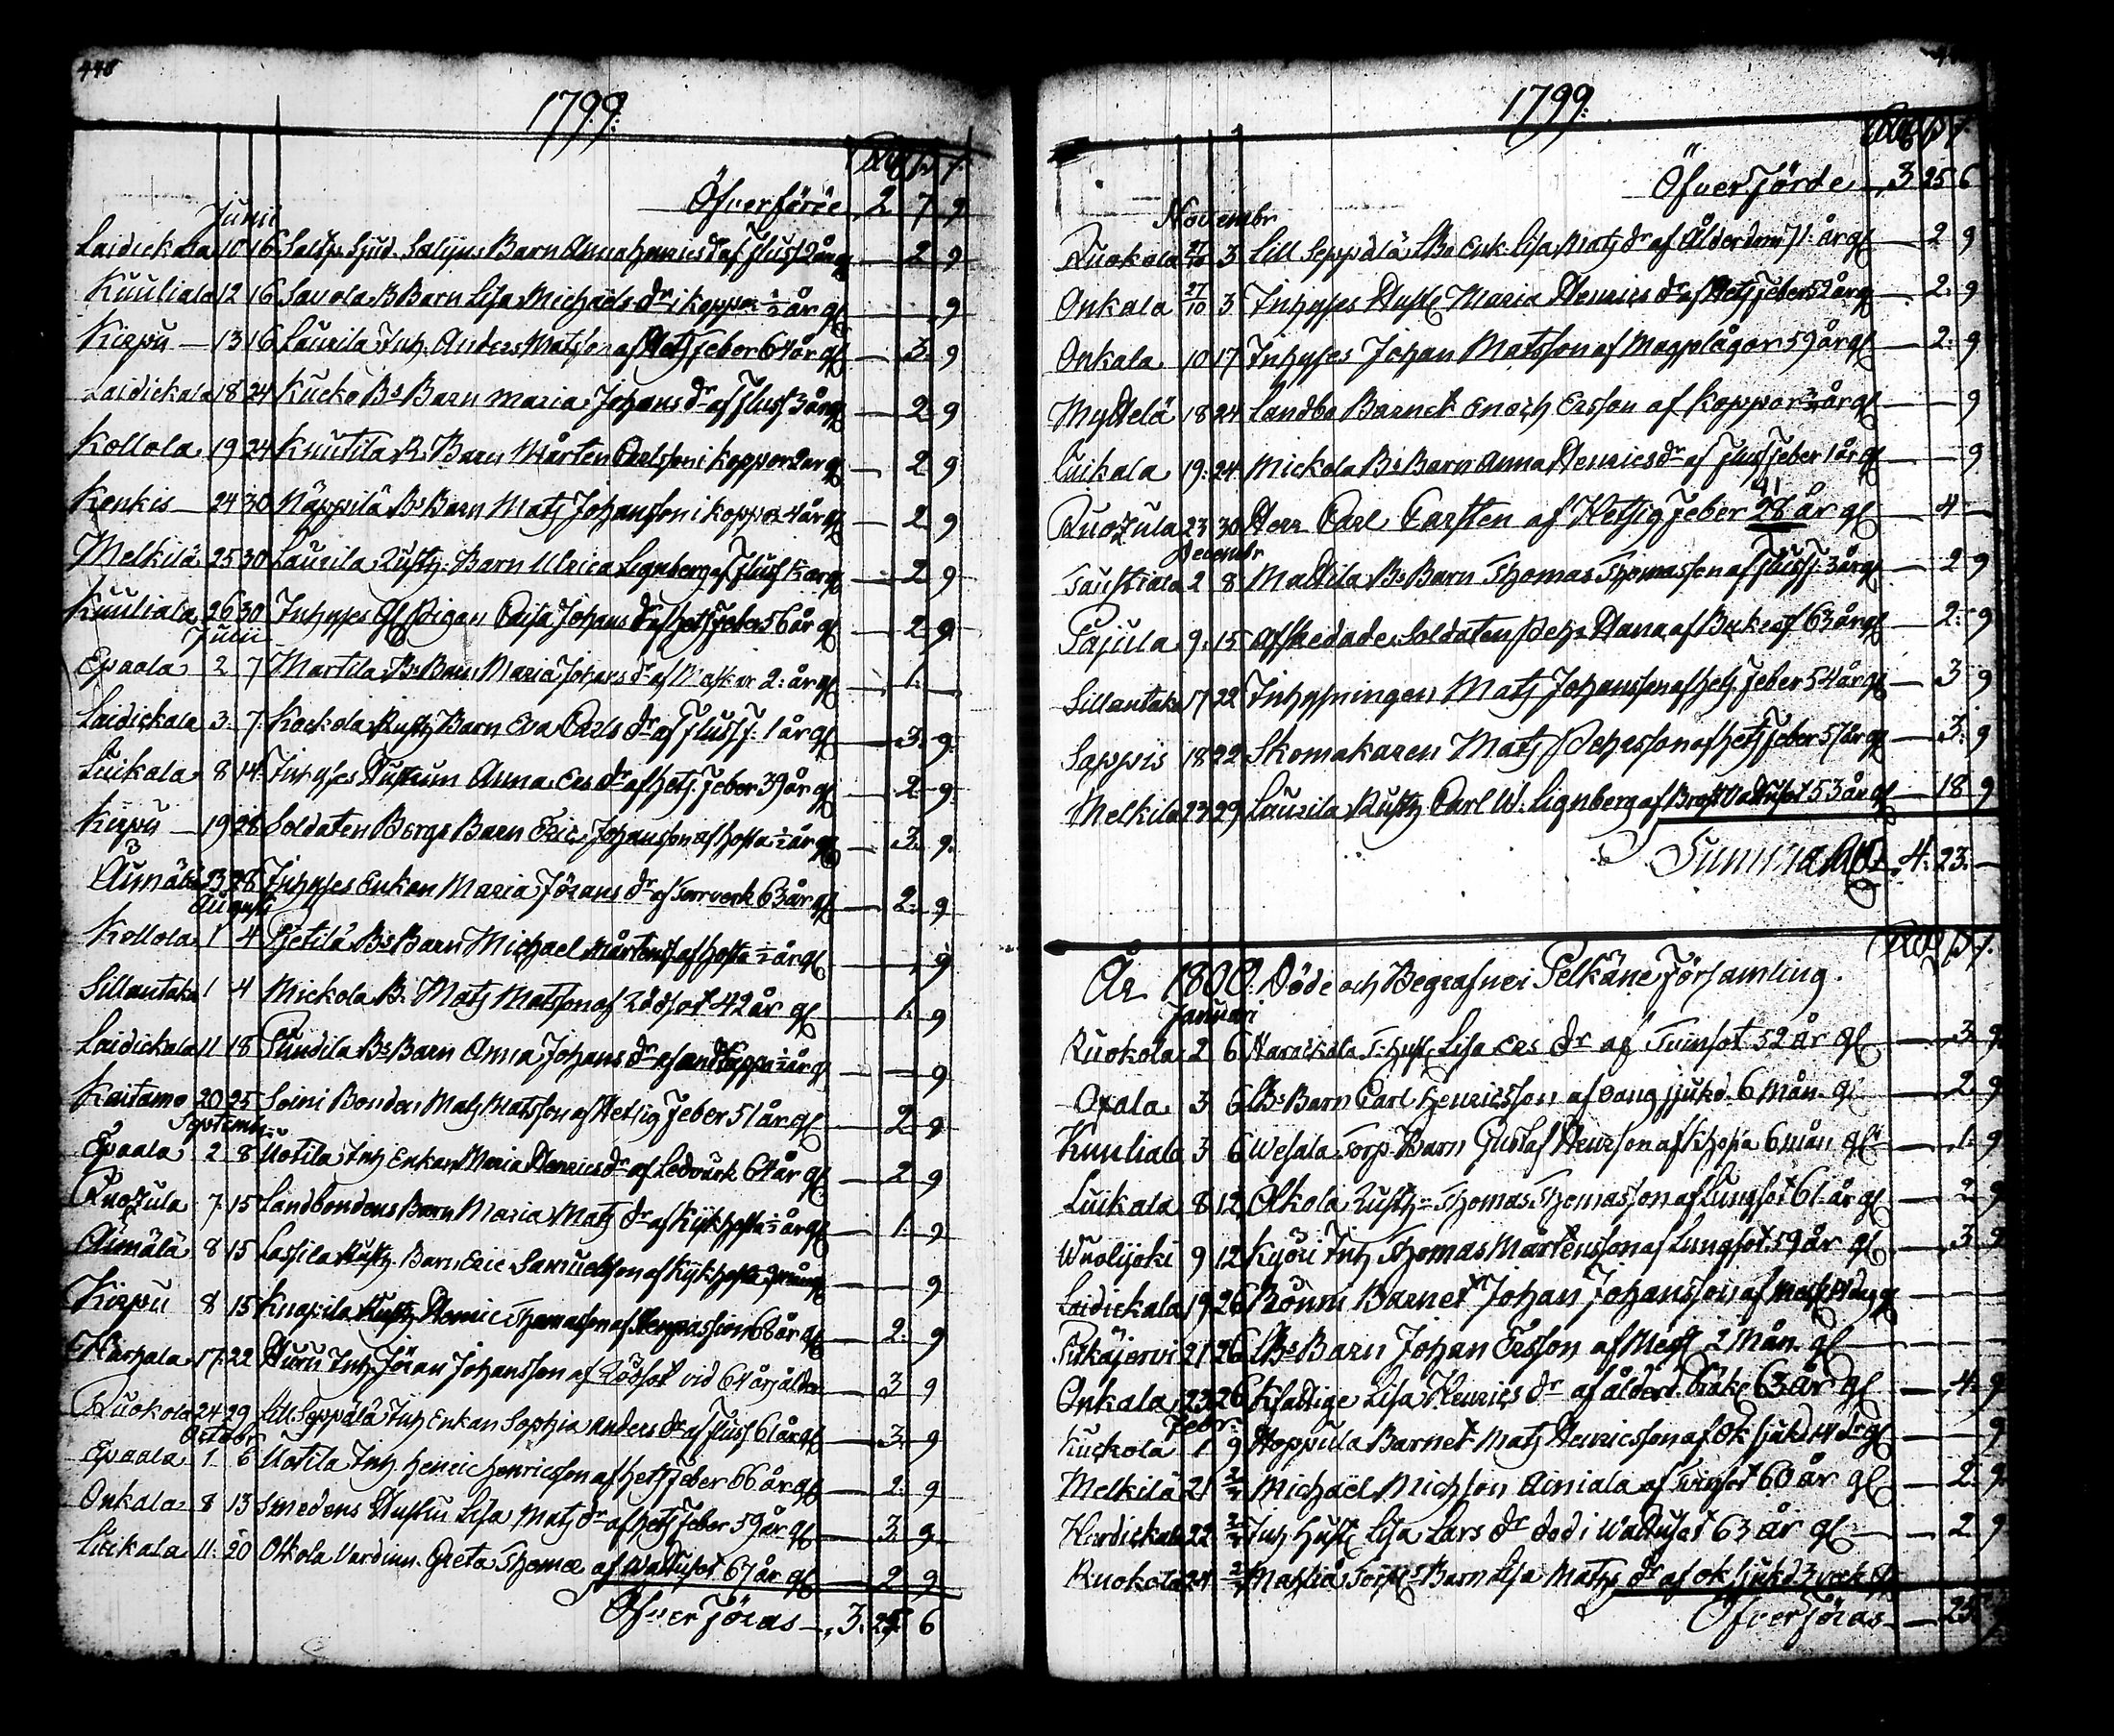 448
1799.
Rdr ß r.
Öfverförde 2 7 9
Junii
Laidickala 10 16 Barn Anna Henricsdr af Flusf 2 år gl — 2 9
Kuuliala 12 16 Savola B Barn Lisa Michaelsdr i koppor ½ år gl — 9
Kirpu — 13 16 Laurila Inh. Anders Matsson af Hets feber 64 år gl — 3 9
Laidickala 18 24 Kucko Bs Barn Maria Johansdr af Flusf 3 år gl — 2 9
Kollola 19 24 Knutila R. Barn Mårten Carlsson i koppor 2 år gl — 2 9
Kenkis — 24 30 Näppilä Bs Barn Matz Johansson i koppor 4 år gl — 2 9
Melkilä 25 30 Laurila Rusth. Barn Ulrica Lignberg af Flusf år gl — 2 9
Kuuliala 26 30 Inhyses Pigan Caisa Johansdr af hets feber 56 år gl — 2 9
Julii
Epaala 2 7 Martila Bs Barn Maria Johansdr af Maskar 2 år gl — 1. —
Laidickala 3. 7. Kockola Rusth Barn Eva Carlsdr af Flusf f. 1 år gl — 3. 9.
Luikala 8 14 Inhyses Hustrun Anna Ersdr af hets. feber 39 år gl — 2. 9.
Kirpu — 19 28 Soldaten Bergs Barn Eric Johansson af hosta ½ år gl — 3. 9.
Äimälä 23 28 Inhyses Enkan Maria Jöransdr af Torrverk 63 år gl — 2. 9
Augusti
Kollola 1 4 Pietilä Bs Barn Michael Mårtenss. af hosta ½ år gl — 9
Sillantaka 1 4 Mickola B. Matz Matsson af Rödsot 42 år gl — 1. 9
Laidickala 11 18 Pundila Bs Barn Anna Johansdr af andtäppa ½ år gl — 9
Kaitamo 20 25 Soini Bonden Matz Matsson af Hetsig feber 51 år gl — 2 9
Septembr
Epaala 2 8 Uotila Inh Enkan Maria Henricsdr af Ledvärk 64 år gl — 2 9
Ruozula 7. 15 Landbondens Barn Maria Matzdr af Kikhosta ½ år gl — 1. 9
Äimälä 8 15 Lassila Rusth. Barn Eric Samuelsson af Kikhosta — 9
Kirpu 8 15 Knapila Rusth Henric Thomasson af 68 år gl — 2. 9
Harhala 17 22 Huru Inh Jöran Johansson af Rödsot vid 64 års ålder — 3 9
Ruokola 24 29 Lill Seppälä Inh Enkan Sophia Andersdr af Flusf 61 år gl — 3. 9
October
Epaala 1. 6 Uotila Inh. Henric Henricsson af hets feber 66 år gl — 2. 9
Onkala 8 13 Smedens Hustru Lisa Matzdr af hets feber 59 år gl — 3. 9
Luikala 11. 20 Olkola Värdinn. Greta Thomæ af Wattusot 67 år gl — 2. 9
Öfverföras — 3. 25 6
1799.
Rdr ß r.
Öfverförde 3 25 6
Novembr
Ruokola 27/10 3 Lill Seppälä Bo Enk. Lisa Matzdr af Ålderdom 71. år gl — 2 9
Onkala 27/10 3 Inhyses Hustr Maria Henricsdr af Hets feber 52 år gl — 2. 9
Onkala 10 17 Inhyses Johan Matsson af Magplågor 59 år gl — 2. 9
Myttelä 18 24 Landbo Barnet Enoch Ersson af Koppor ¾ år gl — 9
Luikala 19. 24 Mickola Bs Barn Anna Henricsdr af Flusfeber 1 år gl — 9
41
Ruozula 23 30 Herr Carl Carsten af Hetsig feber 28 år gl — 4 —
Decembr
Taustiala 2 8 Mattila Bs Barn Thomas Thomasson af Flusf. 3 år gl — 2 9
Pajula 9. 15 Afskedade Soldaten Petr Hana af Bukref 63 år gl — 2. 9
Sillantaka 17 22 Inhysningen Matz Johansson af hets. feber 54 år gl — 3 9
Sappis 18 22 Skomakaren Matz Pehrsson af hets feber 57 år gl — 3. 9
Melkila 23 29 Laurila Rusth Carl W. Lignberg af Bröst Wattusot 53 år gl — 18 9
Summa Rdr 4. 23. —
Rdr ß r.
År 1800. Döde och Begrafne i Pelkäne Församling.
Januari
Ruokola 2 6 Harackala T. hustr Lisa Ersdr af Tvinsot 52 år gl — 3. 9
Oxala 3 6 Bs Barn Carl Henricsson af sjukd. 6 mån. gl — 2. 9
Kuuliala 3 6 Wesala Torp. Barn Gustaf Henrsson af Khosta 6 mån gl — 1. 9
Luikala 8 12 Olkola Rusth. Thomas Thomasson af Lungsot 61. år gl — 2. 9
Wuolijoki 9 12 Kyöri Inh Thomas Mårtensson af Lungsot 59 år gl — 3. 9
Laidickala 19 26 Rönni Barnet Johan Johansson af gl —
Pitkäjervi 21 26 Bs Barn Johan Ersson af 2 Mån. gl —
Onkala 23 26 Kfattige Lisa Henricsdr af ålderd. bräke 63 år gl — 4. 9
Febr.
Kuckola 1 9 Hoppula Barnet Matz Henricsson af Ok sjukd gl — 9
Melkilä 21 Michaël Michson Äiniala af Tvinsot 60 år gl — 2. 9
Herdickala 22 Inh Hustr Lisa Larsdr död i Wattusot 63 år gl — 2 9
Ruokola 24 Torps Barn Lisa Matzdr af ok sjukd 3 veck gl
Öfverföras — 25.